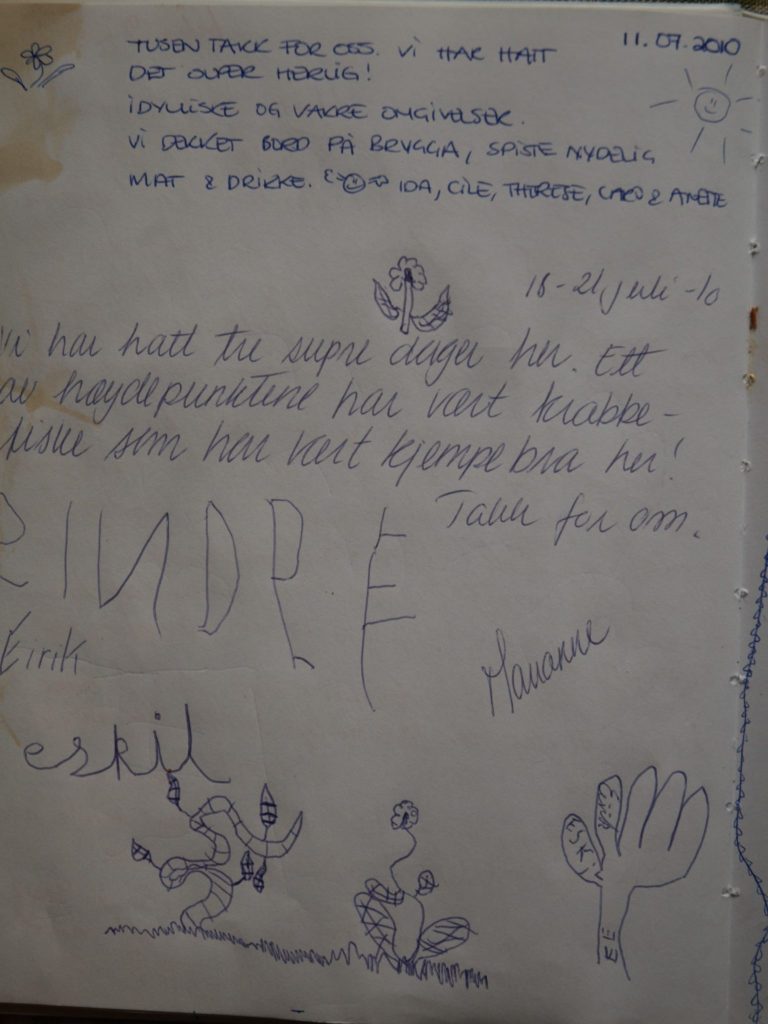 TUSEN TAKK FOR OSS. VI HAR HATT
11.07.2010
DET SUPER HERLIG!
IDYLLISKE OG VAKRE OMGIVELSER.
VI DEKKET BORD PÅ BRYGGA, SPISTE NYDELIG
MAT & DRIKKE. IDA, CILE, THERESE, CARO & ANETTE
18-21 juli -10
Vi har hatt tre supre dager her. Ett
av høydepunktene har vært krabbe-
fiske som har vært kjempebra her!
Takk for oss.
RINDRE
Eirik
Marianne
eskil
Eskil
Eirik
EE